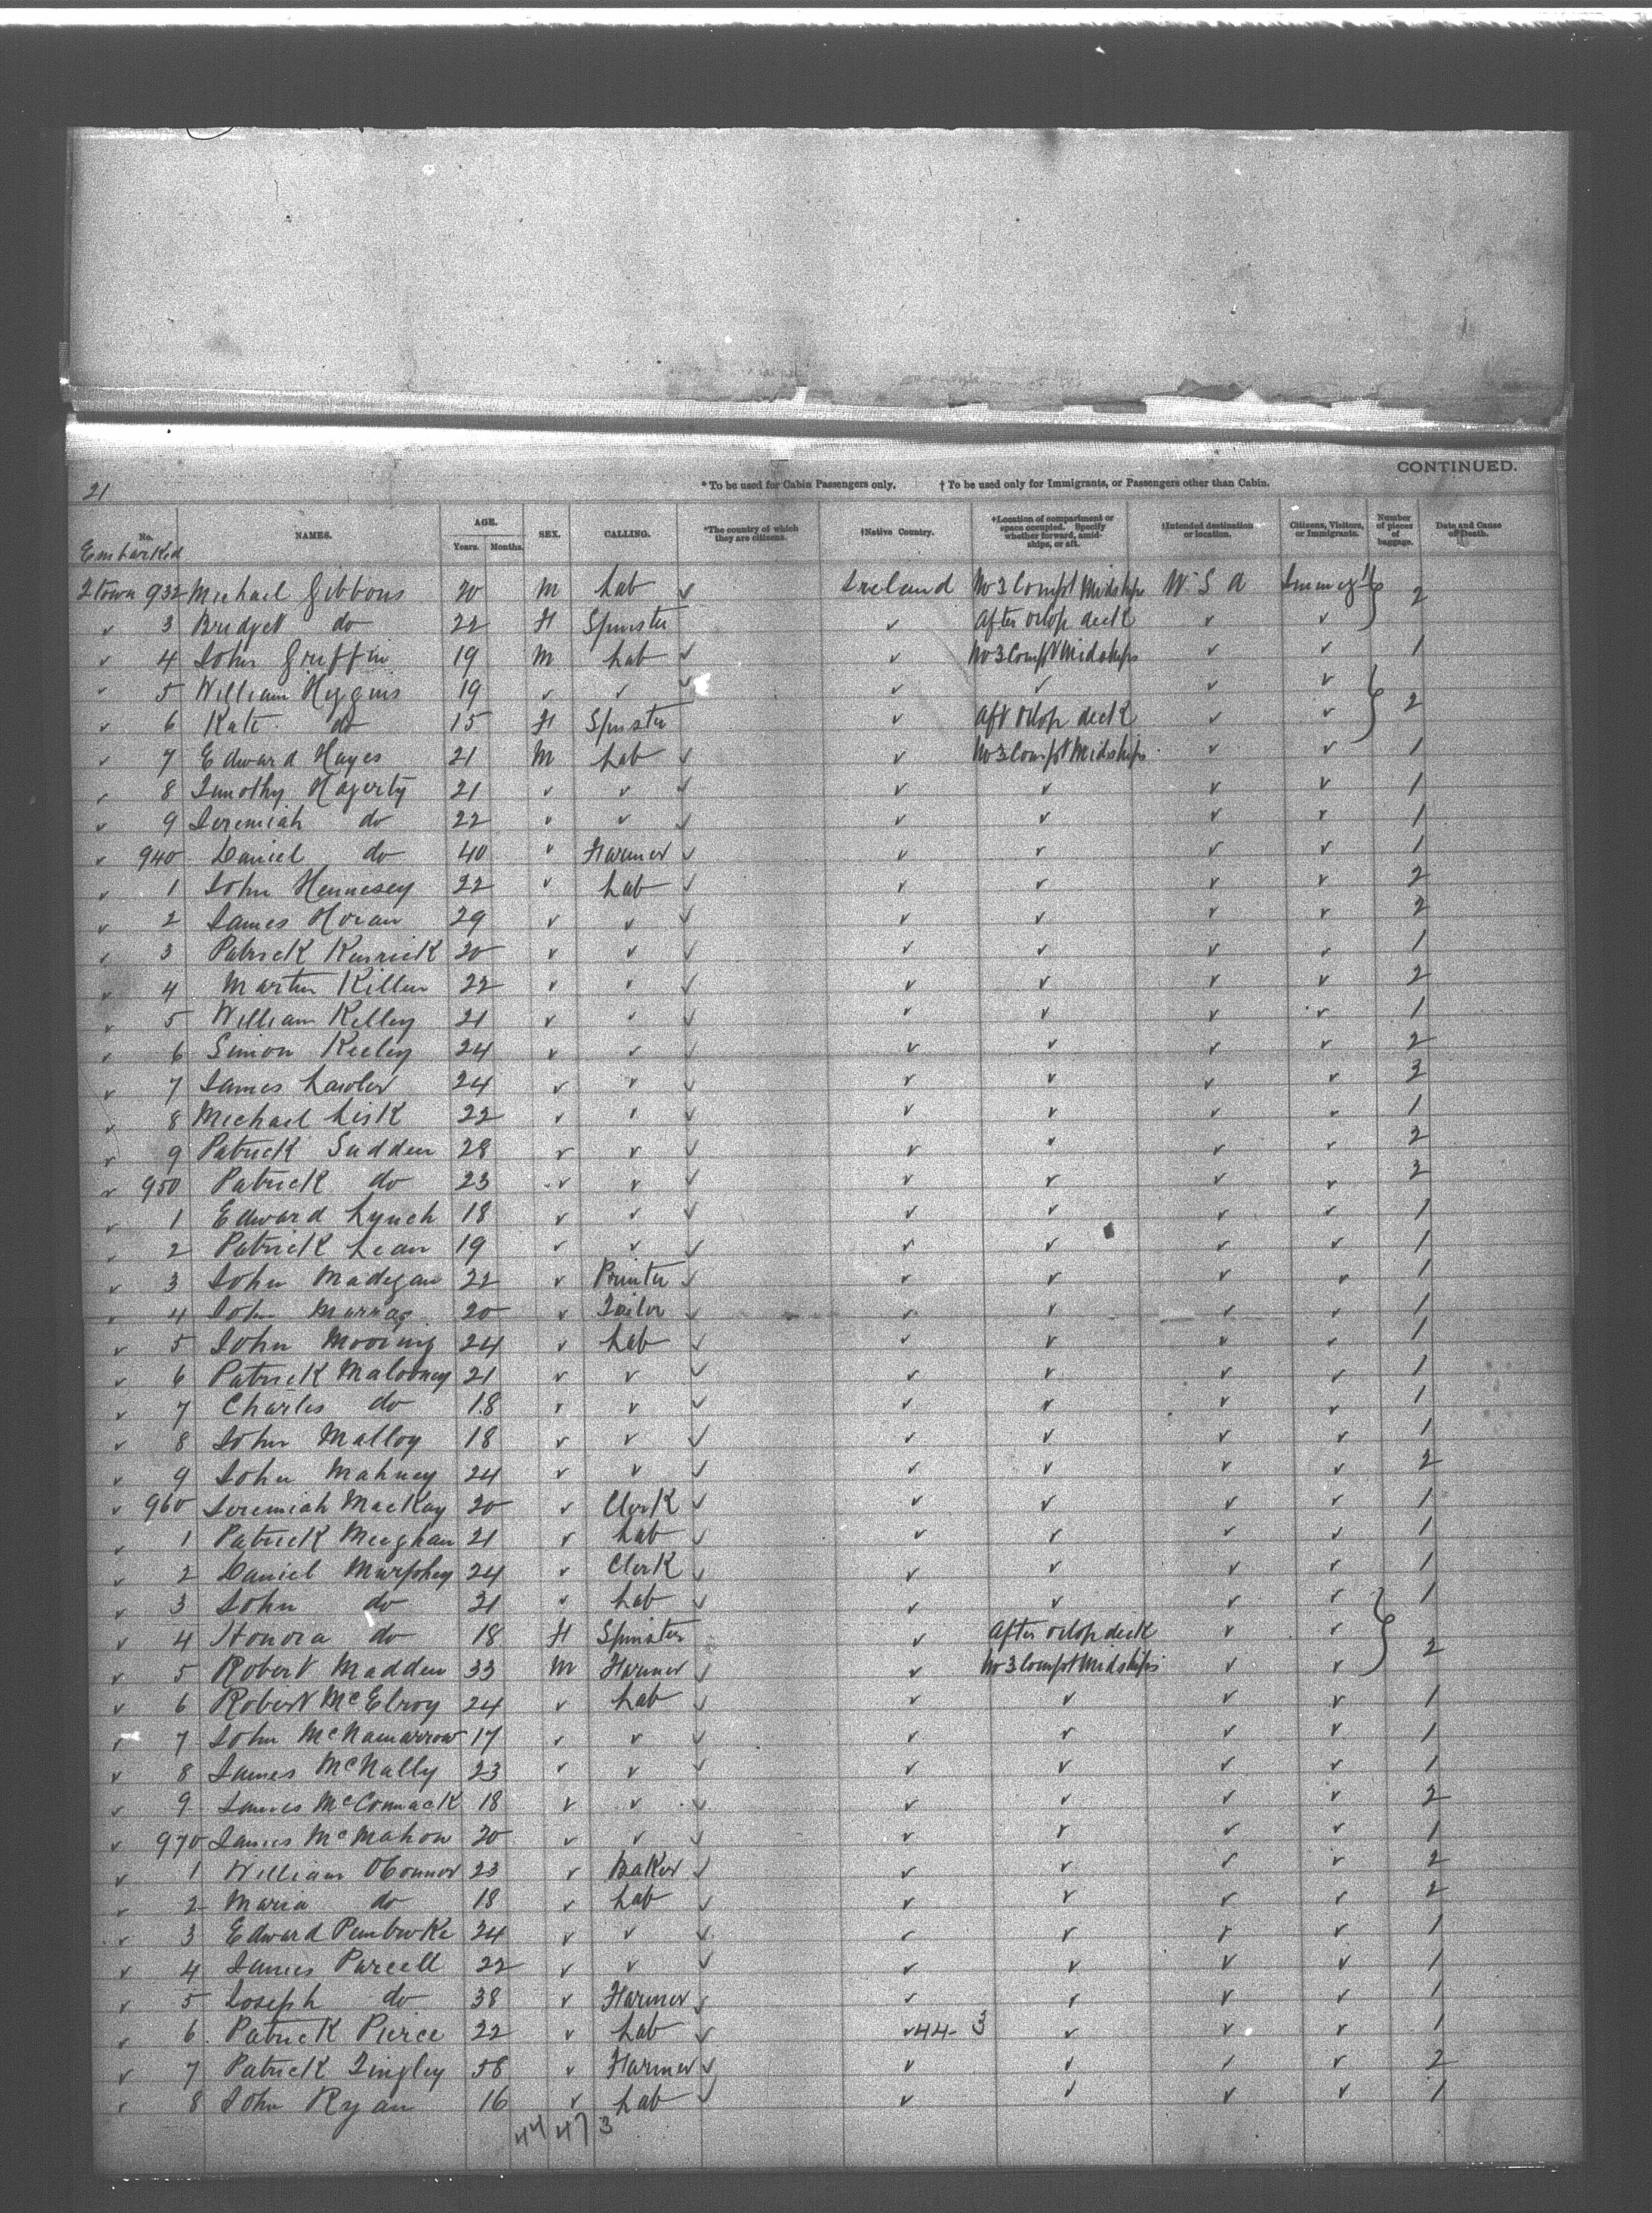 CONTINUED.
21
* To be used for Cabin Passengers only. † To be used only for Immigrants, or Passengers other than Cabin.
No. NAMES. AGE. Years. Months. SEX. CALLING. *The country of which they are citizens. †Native Country. †Location of compartment or space occupied. Specify whether forward, amidships, or aft. †Intended destination or location. Citizens, Visitors, or Immigrants. Number of pieces of baggage. Date and Cause of Death.
Embarked
2town 932 Michael Gibbons 20 M Lab ✓ Ireland No 3 Compt Midships U S A Immegt 2
✓ 3 Bridget do 22 F Spinster ✓ After orlop deck ✓ ✓
✓ 4 John Griffin 19 M Lab ✓ ✓ No 3 Compt Midships ✓ ✓ 1
✓ 5 William Higgins 19 ✓ ✓ ✓ ✓ ✓ ✓ ✓
✓ 6 Kate do 15 F Spinster ✓ Aft Orlop deck ✓ ✓ 2
✓ 7 Edward Hayes 21 M Lab ✓ ✓ No 3 Compt Midships ✓ ✓ 1
✓ 8 Timothy Hagerty 21 ✓ ✓ ✓ ✓ ✓ ✓ ✓ 1
✓ 9 Jeremiah do 22 ✓ ✓ ✓ ✓ ✓ ✓ ✓ 1
✓ 940 Daniel do 40 ✓ Farmer ✓ ✓ ✓ ✓ ✓ 1
✓ 1 John Hennesey 22 ✓ Lab ✓ ✓ ✓ ✓ ✓ 2
✓ 2 James Horan 29 ✓ ✓ ✓ ✓ ✓ ✓ ✓ 2
✓ 3 Patrick 20 ✓ ✓ ✓ ✓ ✓ ✓ ✓ 1
✓ 4 Martin Killen 22 ✓ ✓ ✓ ✓ ✓ ✓ ✓ 2
✓ 5 William Kelley 21 ✓ ✓ ✓ ✓ ✓ ✓ ✓ 1
✓ 6 Simon Keeley 24 ✓ ✓ ✓ ✓ ✓ ✓ ✓ 2
✓ 7 James Lawler 24 ✓ ✓ ✓ ✓ ✓ ✓ ✓ 3
✓ 8 Michael Lisk 22 ✓ ✓ ✓ ✓ ✓ ✓ ✓ 1
✓ 9 Patrick 28 ✓ ✓ ✓ ✓ ✓ ✓ ✓ 2
✓ 950 Patrick do 23 ✓ ✓ ✓ ✓ ✓ ✓ ✓ 2
✓ 1 Edward Lynch 18 ✓ ✓ ✓ ✓ ✓ ✓ ✓ 1
✓ 2 Patrick Lean 19 ✓ ✓ ✓ ✓ ✓ ✓ ✓ 1
✓ 3 John Madigan 22 ✓ Printer ✓ ✓ ✓ ✓ ✓ 1
✓ 4 John 20 ✓ Tailor ✓ ✓ ✓ ✓ ✓ 1
✓ 5 John 24 ✓ Lab ✓ ✓ ✓ ✓ ✓ 1
✓ 6 Patrick Malooney 21 ✓ ✓ ✓ ✓ ✓ ✓ ✓ 1
✓ 7 Charles do 18 ✓ ✓ ✓ ✓ ✓ ✓ ✓ 1
✓ 8 John Malloy 18 ✓ ✓ ✓ ✓ ✓ ✓ ✓ 1
✓ 9 John Mahney 24 ✓ ✓ ✓ ✓ ✓ ✓ ✓ 2
✓ 960 Jeremiah MacKay 20 ✓ Clerk ✓ ✓ ✓ ✓ ✓ 1
✓ 1 Patrick Meeghan 21 ✓ Lab ✓ ✓ ✓ ✓ ✓ 1
✓ 2 Daniel Murphey 24 ✓ Clerk ✓ ✓ ✓ ✓ ✓ 1
✓ 3 John do 21 ✓ Lab ✓ ✓ ✓ ✓ ✓ 1
✓ 4 Honora do 18 F Spinster ✓ After orlop deck ✓ ✓ 2
✓ 5 Robert Madden 33 M Farmer ✓ ✓ No 3 Compt Midships ✓ ✓
✓ 6 Robert McElroy 24 ✓ Lab ✓ ✓ ✓ ✓ ✓ 1
✓ 7 John McNamarrow 17 ✓ ✓ ✓ ✓ ✓ ✓ ✓ 1
✓ 8 James McNally 23 ✓ ✓ ✓ ✓ ✓ ✓ ✓ 1
✓ 9 James McCormack 18 ✓ ✓ ✓ ✓ ✓ ✓ ✓ 2
✓ 970 James McMahon 20 ✓ ✓ ✓ ✓ ✓ ✓ ✓ 1
✓ 1 William OConnor 23 ✓ Baker ✓ ✓ ✓ ✓ ✓ 2
✓ 2 Maria do 18 ✓ Lab ✓ ✓ ✓ ✓ ✓ 2
✓ 3 Edward Pembroke 24 ✓ ✓ ✓ ✓ ✓ ✓ ✓ 1
✓ 4 James Purcell 22 ✓ ✓ ✓ ✓ ✓ ✓ ✓ 1
✓ 5 Joseph do 38 ✓ Farmer ✓ ✓ ✓ ✓ ✓ 1
✓ 6 Patrick Pierce 22 ✓ Lab ✓ ✓ 44- 3 ✓ ✓ ✓ 1
✓ 7 Patrick 58 ✓ Farmer ✓ ✓ ✓ ✓ ✓ 2
✓ 8 John Ryan 16 ✓ Lab ✓ ✓ ✓ ✓ ✓ 1
44 47 3